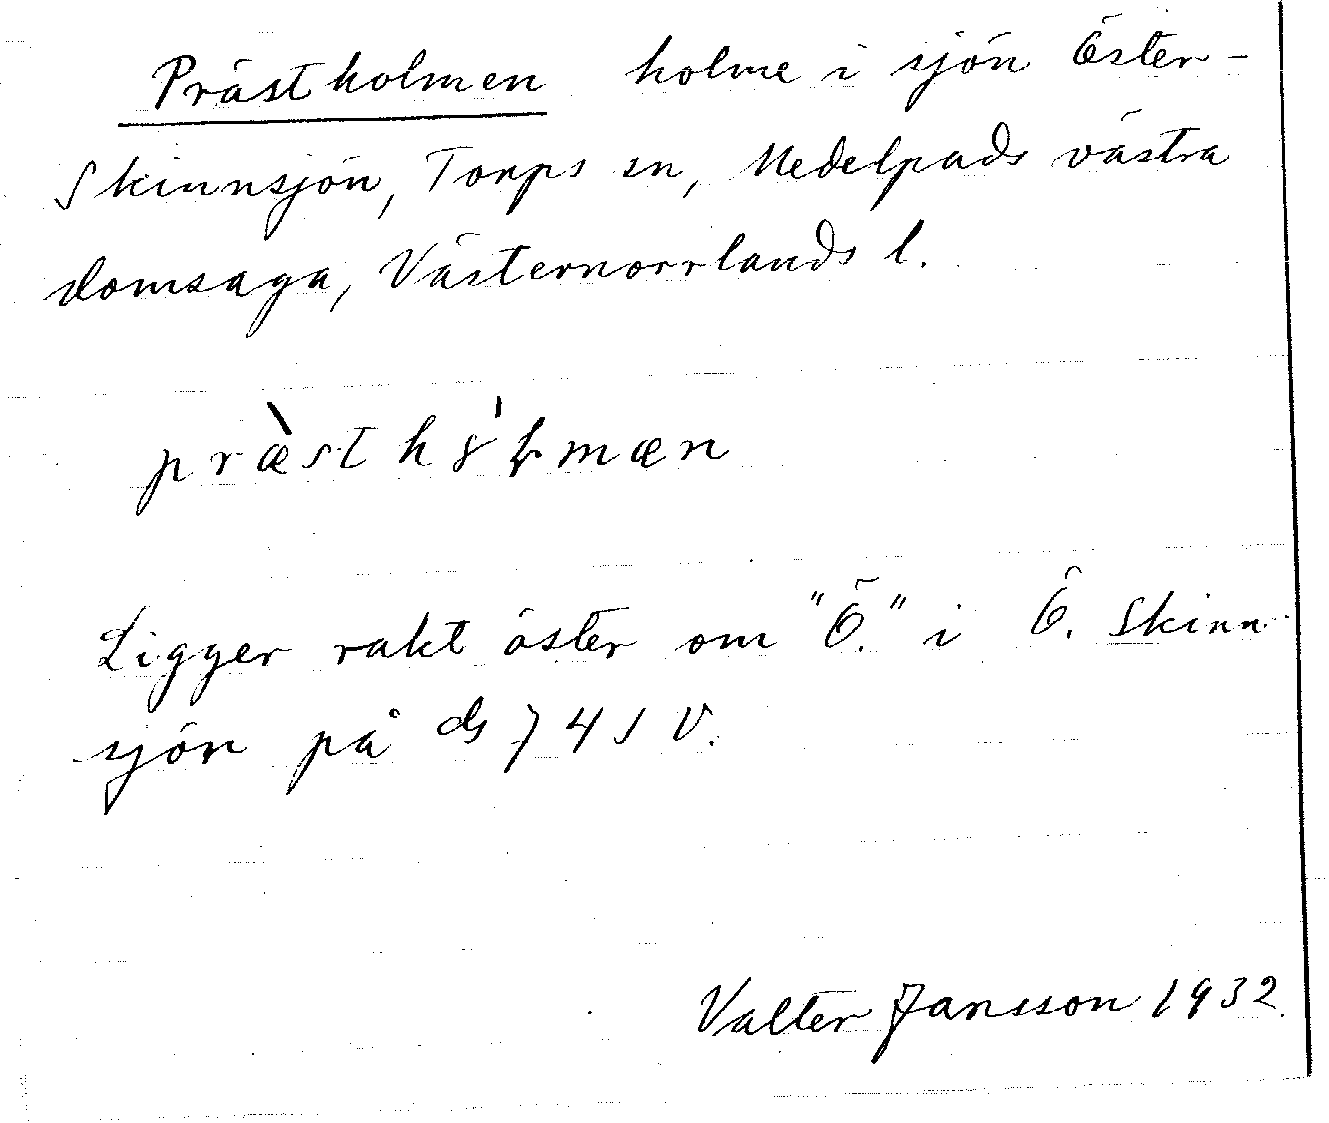 Prästholmen holme i sjön Öster-
Skinnsjön, Torps sn, Medelpads västra
domsaga, Västernorrlands l.
Ligger rakt öster om "Ö." i Ö. Skinn-
sjön på ds 741 V.
Valter Jansson 1932.